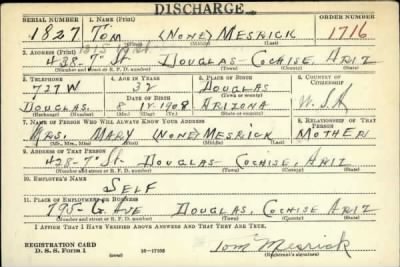 DISCHARGE
SERIAL NUMBER 1. NAME (Print) ORDER NUMBER
1827 TOM (NONE) MESRICK 1716
(First) (Middle) (Last)
2. ADDRESS (Print)
438-7th St DOUGLAS - COCHISE, ARIZ
(Number and street or R. F. D. number) (Town) (County) (State)
3. TELEPHONE 4. AGE IN YEARS 5. PLACE OF BIRTH 6. COUNTRY OF CITIZENSHIP
727W 32 DOUGLAS
DATE OF BIRTH
DOUGLAS. 8 1908 ARIZONA U.S.A
(Exchange) (Number) (Mo.) (Day) (Yr.) (State or country)
7. NAME OF PERSON WHO WILL ALWAYS KNOW YOUR ADDRESS 8. RELATIONSHIP OF THAT PERSON
MRS. MARY (NONE) MESRICK MOTHER
(Mr., Mrs., Miss) (First) (Middle) (Last)
9. ADDRESS OF THAT PERSON
438-7th St DOUGLAS COCHISE, ARIZ
(Number and street or R. F. D. number) (Town) (County) (State)
10. EMPLOYER'S NAME
SELF
11. PLACE OF EMPLOYMENT OR BUSINESS
795-G. AVE DOUGLAS, COCHISE ARIZ
(Number and street or R. F. D. number) (Town) (County) (State)
I AFFIRM THAT I HAVE VERIFIED ABOVE ANSWERS AND THAT THEY ARE TRUE.
REGISTRATION CARD
D. S. S. Form 1 16-17105 Tom Mesrick
(Registrant's signature)